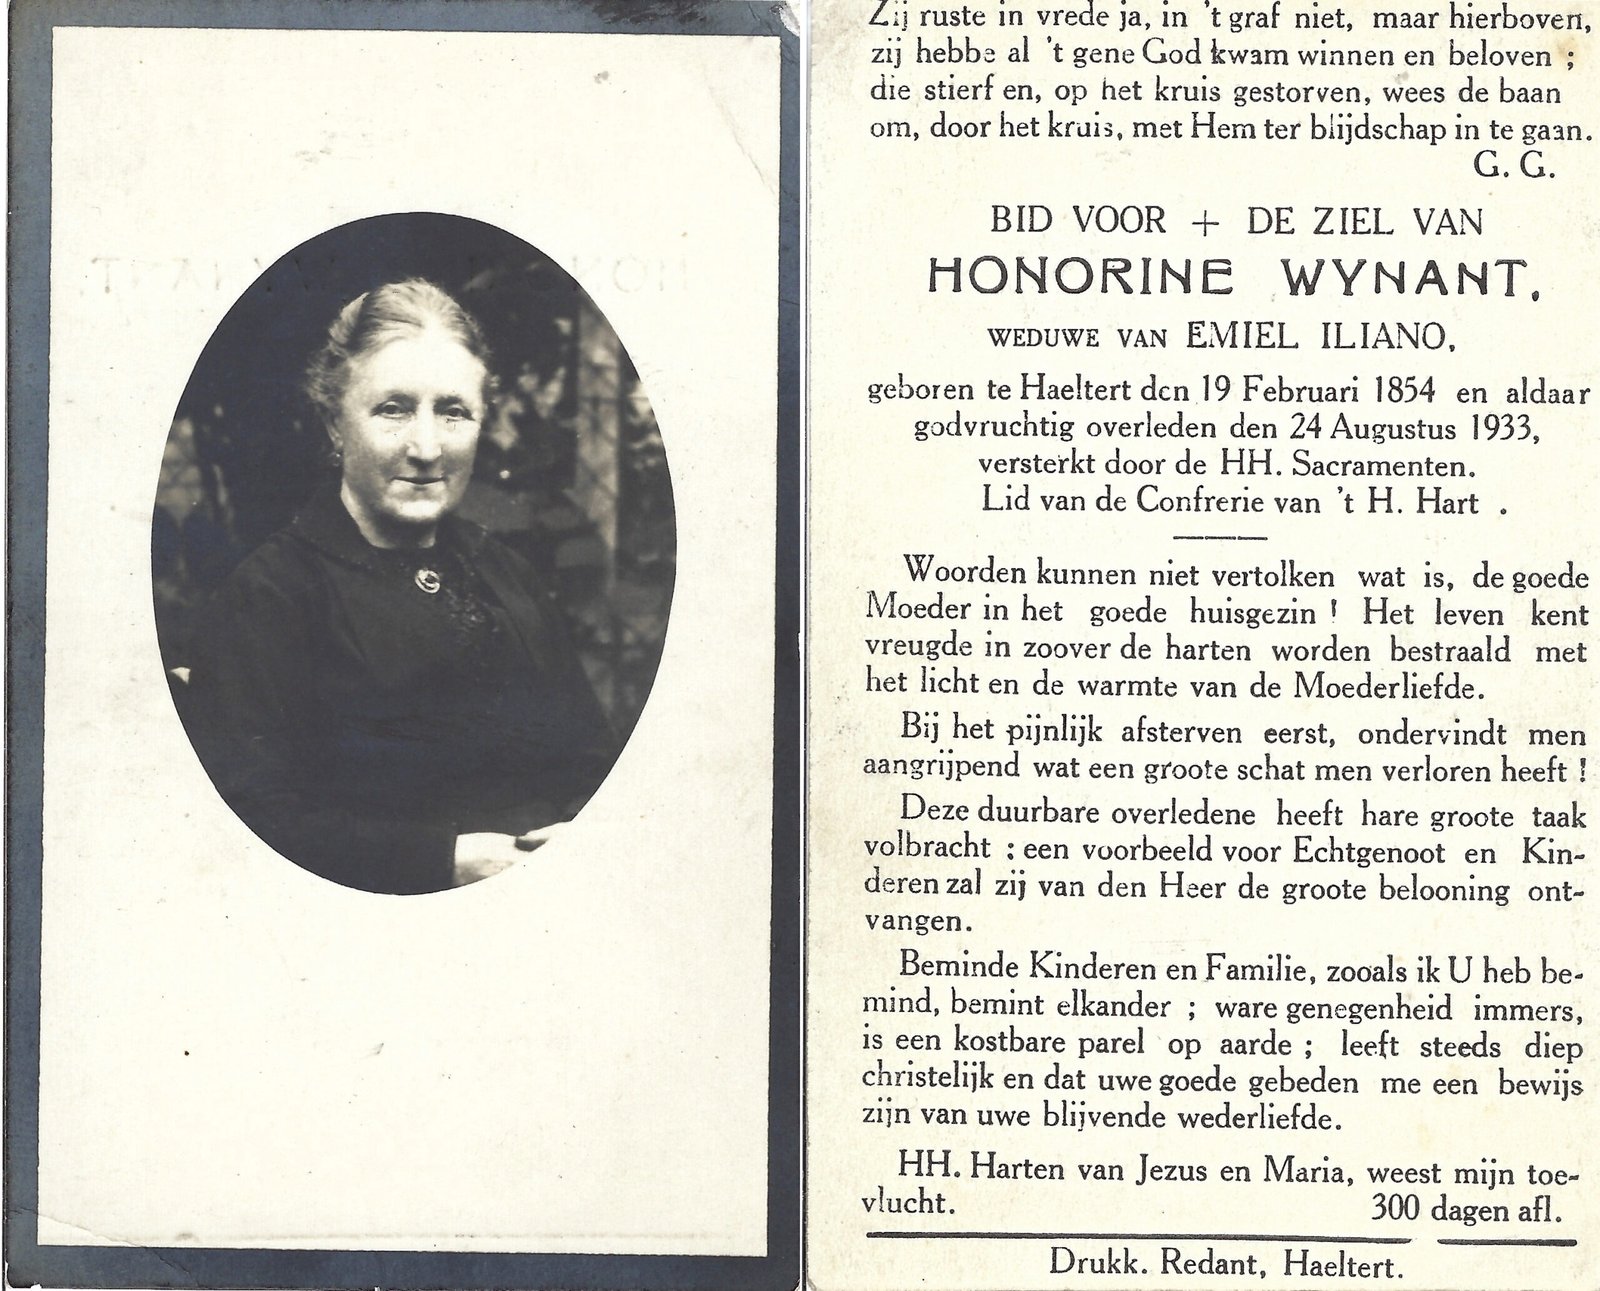 Zij ruste in vrede ja, in 't graf niet, maar hierboven,
zij hebbe al 't gene God kwam winnen en beloven ;
die stierf en, op het kruis gestorven, wees de baan
om, door het kruis, met Hem ter blijdschap in te gaan.
G. G.
BID VOOR + DE ZIEL VAN
HONORINE WYNANT,
WEDUWE VAN EMIEL ILIANO,
geboren te Haeltert den 19 Februari 1854 en aldaar
godvruchtig overleden den 24 Augustus 1933,
versterkt door de HH. Sacramenten.
Lid van de Confrerie van 't H. Hart .
Woorden kunnen niet vertolken wat is, de goede
Moeder in het goede huisgezin ! Het leven kent
vreugde in zoover de harten worden bestraald met
het licht en de warmte van de Moederliefde.
Bij het pijnlijk afsterven eerst, ondervindt men
aangrijpend wat een groote schat men verloren heeft !
Deze duurbare overledene heeft hare groote taak
volbracht : een voorbeeld voor Echtgenoot en Kin-
deren zal zij van den Heer de groote belooning ont-
vangen.
Beminde Kinderen en Familie, zooals ik U heb be-
mind, bemint elkander ; ware genegenheid immers,
is een kostbare parel op aarde ; leeft steeds diep
christelijk en dat uwe goede gebeden me een bewijs
zijn van uwe blijvende wederliefde.
HH. Harten van Jezus en Maria, weest mijn toe-
vlucht. 300 dagen afl.
Drukk. Redant, Haeltert.